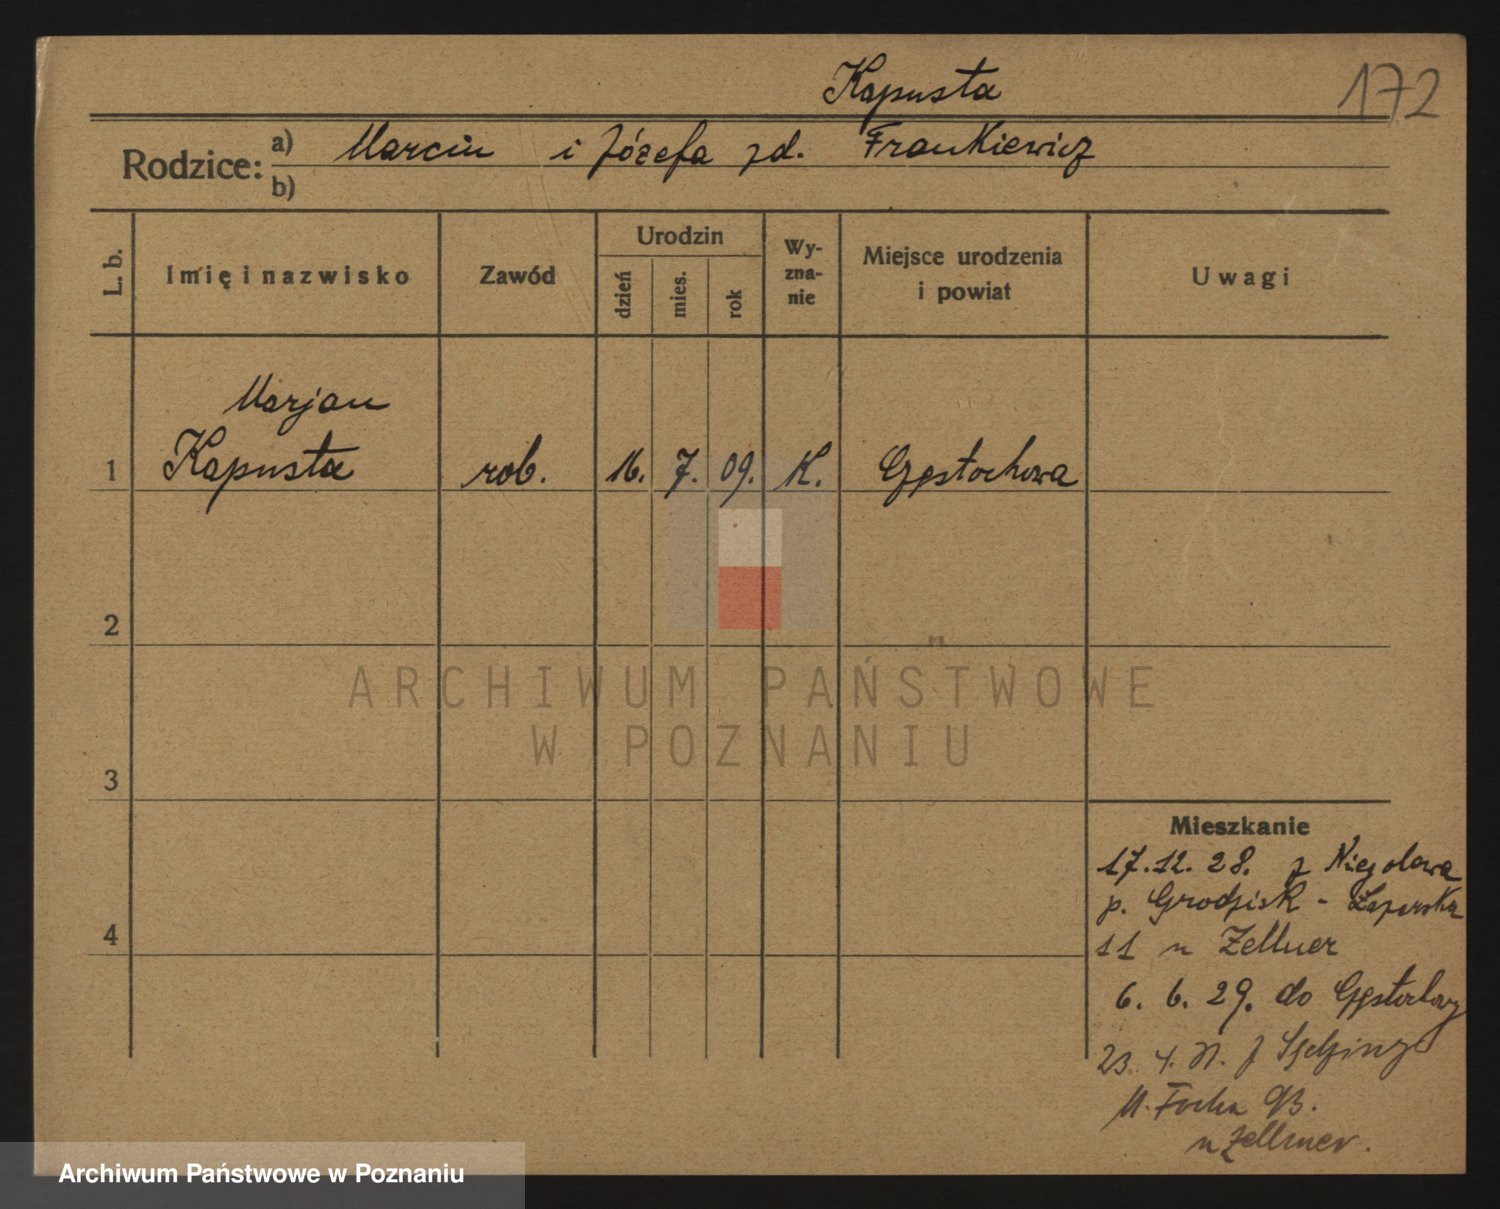 Kapusta
172
Rodzice:
a) Marcin i Józefa zd. Frankiewicz
b)
L. b.
Imię i nazwisko
Zawód
Urodzin
dzień
mies.
rok
Wy-
zna-
nie
Miejsce urodzenia
i powiat
Uwagi
Marjan
1 Kapusta rob. 16. 7. 09. K. Częstochowa
2
3
4
ARCHIWUM PAŃSTWOWE
W POZNANIU
Mieszkanie
17.12.28. z Niegolewa
p. Grodzisk -
11 u Zellner
6. 6. 29. do Częstochowy
23. 4. z
M. Focha 93.
u Zellmer.
Archiwum Państwowe w Poznaniu